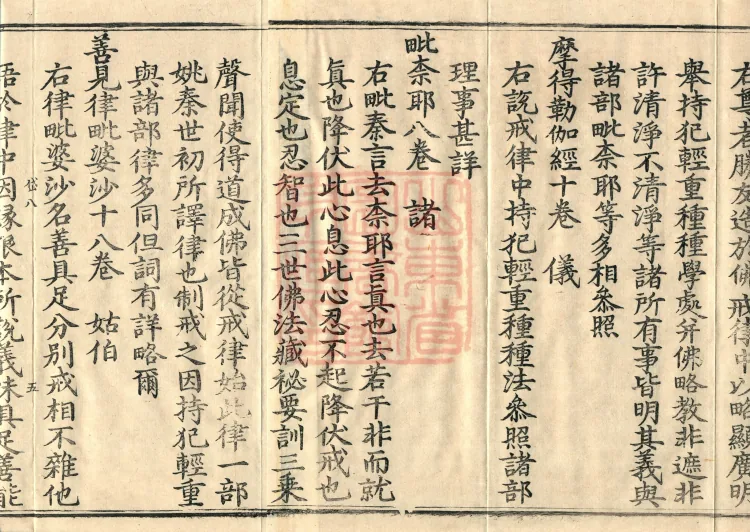 右尊者勝友造於佛戒律中以略顯廣明
舉持犯輕重種種學處并佛略教非遮非
許清淨不清淨等諸所有事皆明其義與
諸部毗奈耶等多相參照
摩得勒伽經十卷 儀
右説戒律中持犯輕重種種法參照諸部
理事甚詳
毗柰耶八卷 諸
右毗秦言去柰耶言真也去若干非而就
真也降伏此心息此心忍不起降伏戒也
息定也忍智也三世佛法藏祕要訓三乗
聲聞使得道成佛皆從戒律始此律一部
姚秦世初所譯律也制戒之因持犯輕重
與諸部律多同但詞有詳略爾
善見律毗婆沙十八卷 姑伯
右律毗婆沙名善具足分別戒相不雜他
岱八 五
悟於律中因緣根本所説義味具足善能